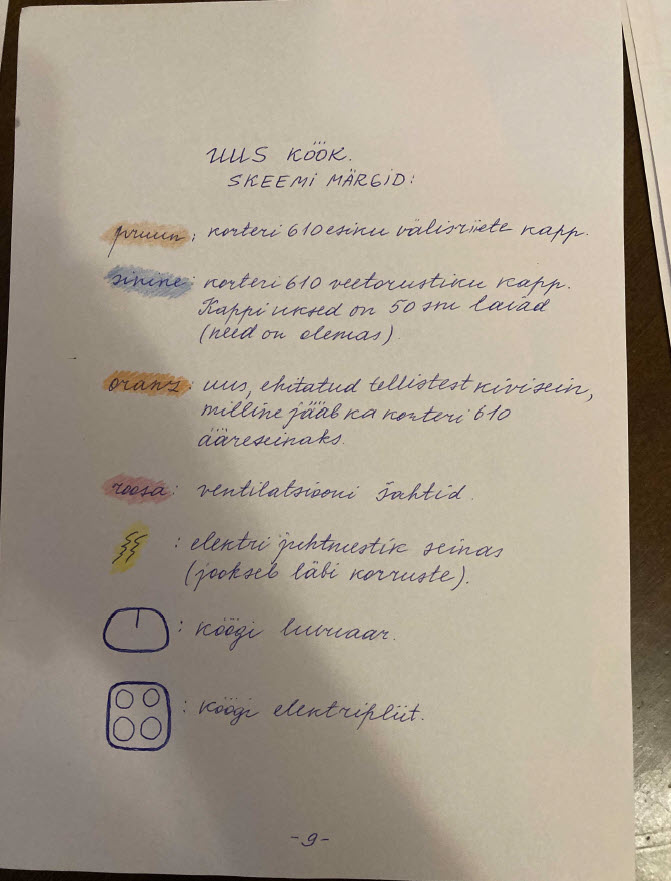 UUS KÖÖK.
SKEEMI MÄRGID:
pruun: korteri 610 esiku välisriiete kapp.
sinine: korteri 610 veetorustiku kapp.
Kappi uksed on 50 sm laiad
(need on olemas).
oranz: uus, ehitatud tellistest kivisein,
milline jääb ka korteri 610
ääreseinaks.
roosa: ventilatsiooni šahtid.
: elektri juhtmestik seinas
(jookseb läbi korruste).
: köögi
: köögi elektripliit.
-9-